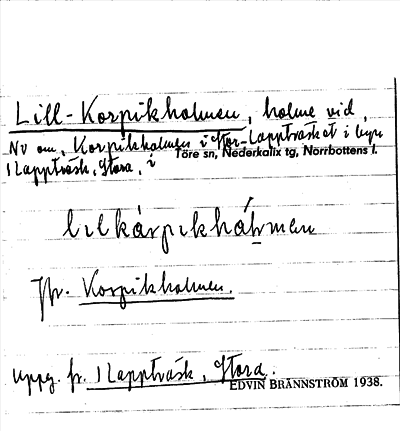 Lill-Korpikholmen, holme vid,
NV om, Korpikholmen i Stor-Lappträsket i byn
1 Lappträsk, Stora, i Töre sn, Nederkalix tg, Norrbottens l.
lılkárpıkhálmen
Jfr. Korpikholmen.
Uppg. fr. 1 Lappträsk, Stora.
EDVIN BRÄNNSTRÖM 1938.